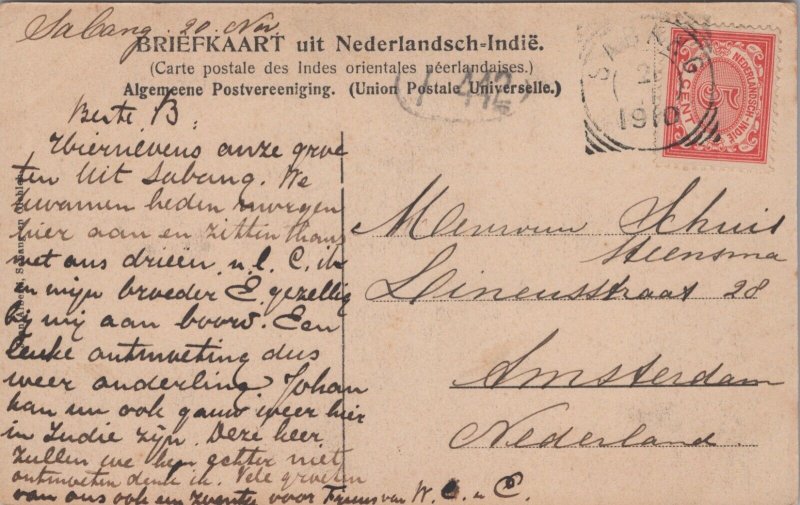 Sabang 20 Nov
BRIEFKAART uit Nederlandsch-Indië.
(Carte postale des Indes orientales néerlandaises.)
Algemeene Postvereeniging. (Union Postale Universelle.)
SABANG
1910
NEDERLANDSCH-INDIË
5
CENT
Beste B:
Hiernevens onze groe
ten uit Sabang. We
kwamen heden morgen
hier aan en zitten thans
met ons drieën n.l. C. ik
en mijn broeder E. gezellig
bij mij aan boord. Een
leuke ontmoeting dus
weer onderling Johan
kan nu ook gauw weer hier
in Indië zijn. Deze keer
zullen we hem echter niet
ontmoeten denk ik. Vele groeten
van ons ook een zoentje voor van W. E. n C.
Mevrouw Schuil
Steensma
Lineusstraat 28
Amsterdam
Nederland.